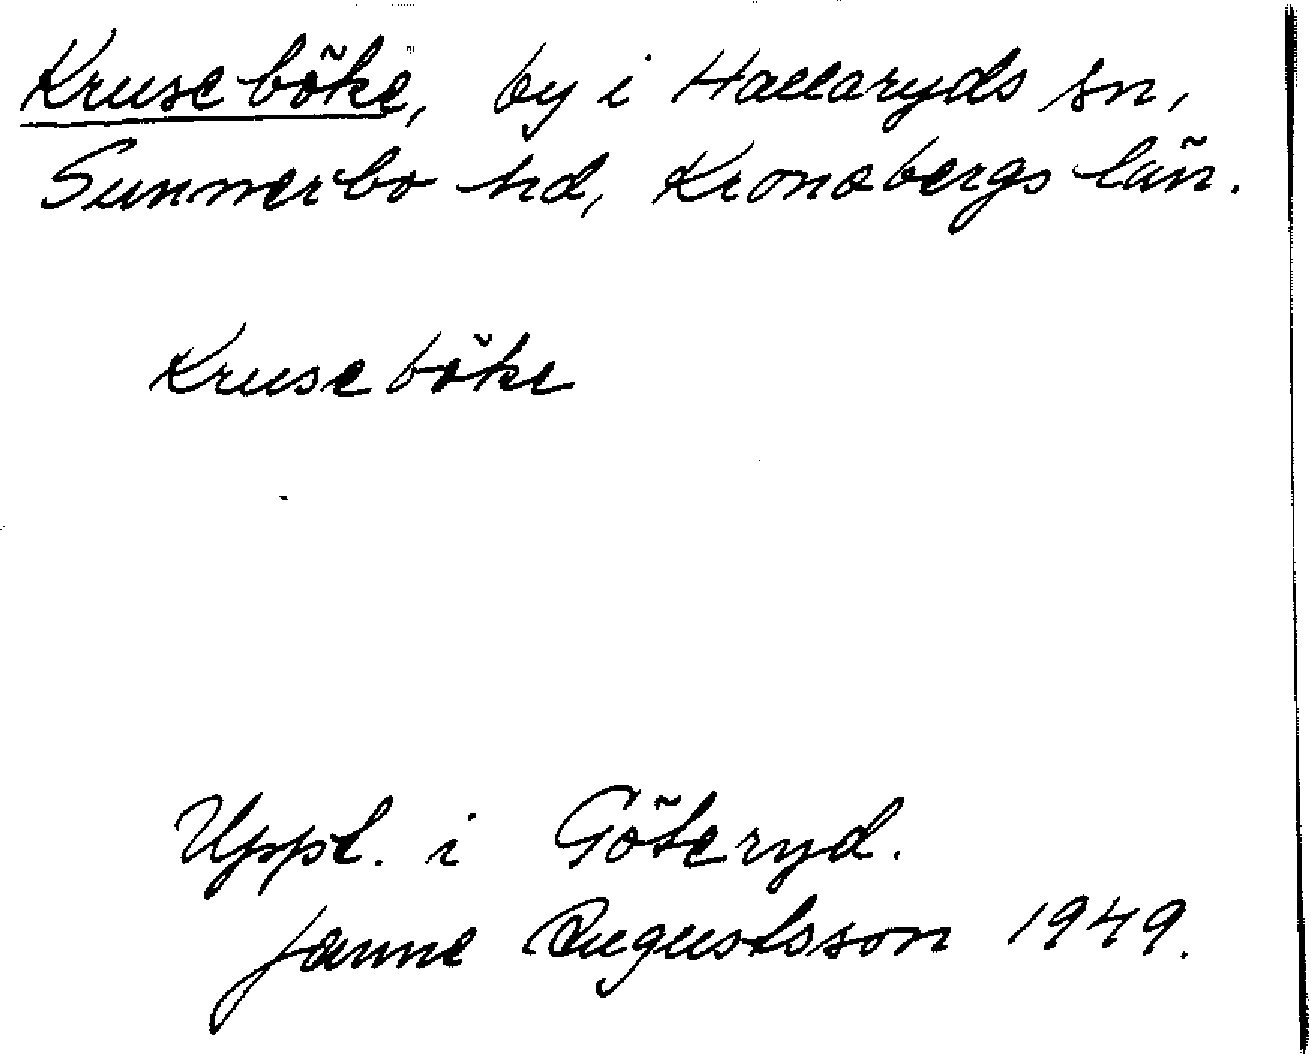 Kruseböke, by i Hallaryds sn,
Sunnerbo hd, Kronobergs län.
Kruseböke
Uppt. i Göteryd.
Janne Augustsson 1949.